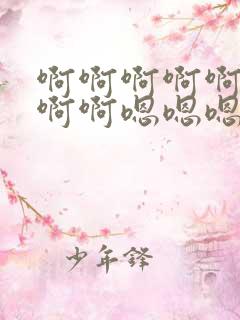 啊啊啊啊啊
啊啊嗯嗯嗯
少年锋